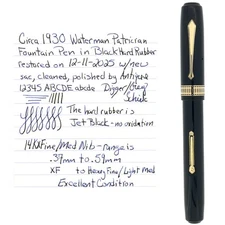 Circa 1930 Waterman Patrician
Fountain Pen in Black Hard Rubber
restored on 12-11-2025 w/new
sac, cleaned, polished by
12345 ABCDE abcde
The hard rubber is
Jet Black - no oxidation
14K Fine/Med Nib - range is
.39mm to .59mm
XF to Heavy Fine/Light Med
Excellent Condition